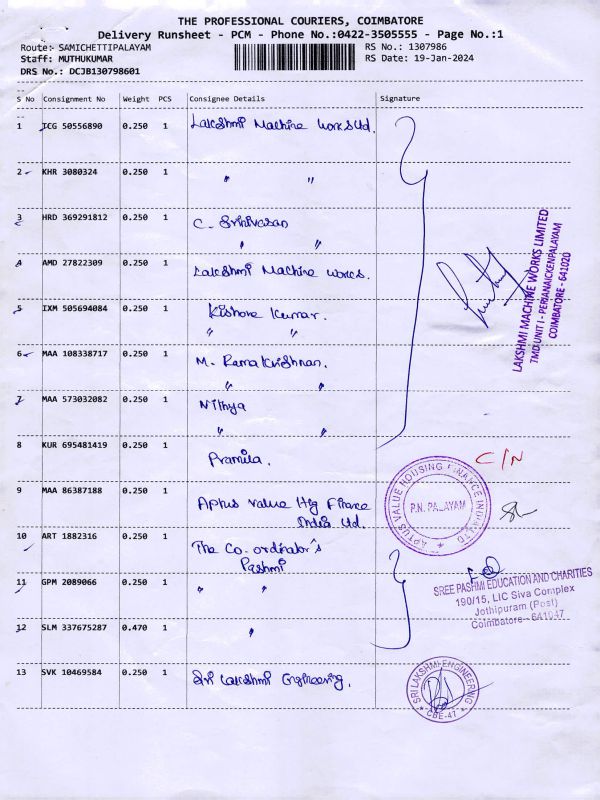 THE PROFESSIONAL COURIERS, COIMBATORE
Delivery Runsheet - PCM - Phone No.:0422-3505555 - Page No.:1
Route:- SAMICHETTIPALAYAM
RS No.: 1307986
Staff: MUTHUKUMAR
RS Date: 19-Jan-2024
DRS No.: DCJB130798601
S No Consignment No Weight PCS Consignee Details Signature
1 TCG 50556890 0.250 1 Lakshmi Machine Works Ltd.
2 KHR 3080324 0.250 1 " "
3 HRD 369291812 0.250 1 C. Srinivasan
" "
4 AMD 27822309 0.250 1 Lakshmi Machine Works.
5 IXM 505694084 0.250 1 Kishore Kumar.
" "
6 MAA 108338717 0.250 1 M. Ramakrishnan.
" "
7 MAA 573032082 0.250 1 Nithya
" "
8 KUR 695481419 0.250 1 Pramila.
C/N
9 MAA 86387188 0.250 1 Aptus Value Hsg Finance
India Ltd.
10 ART 1882316 0.250 1 The Co-ordinator's
Pashmi
11 GPM 2089066 0.250 1 " "
12 SLM 337675287 0.470 1 "
13 SVK 10469584 0.250 1 Sri Lakshmi Engineering.
LAKSHMI MACHINE WORKS LIMITED
TMD UNIT I - PERIANAICKENPALAYAM
COIMBATORE - 641020
APTUS VALUE HOUSING FINANCE INDIA LTD
P.N. PALAYAM
SREE PASHMI EDUCATION AND CHARITIES
190/15, LIC Siva Complex
Jothipuram (Post)
Coimbatore - 641047
SRI LAKSHMI ENGINEERING
CBE-47